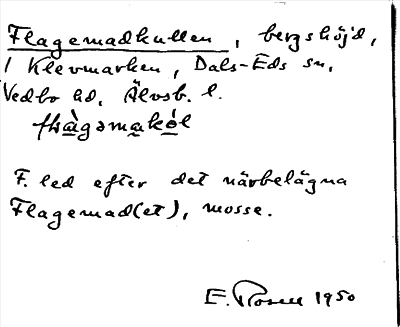 Flagemadkullen, bergshöjd,
i Klevmarken, Dals-Eds sn,
Vedbo hd, Älvsb. l.
flàgəmakól
F. led efter det närbelägna
Flagemad(et), mosse.
E. Rosell 1950